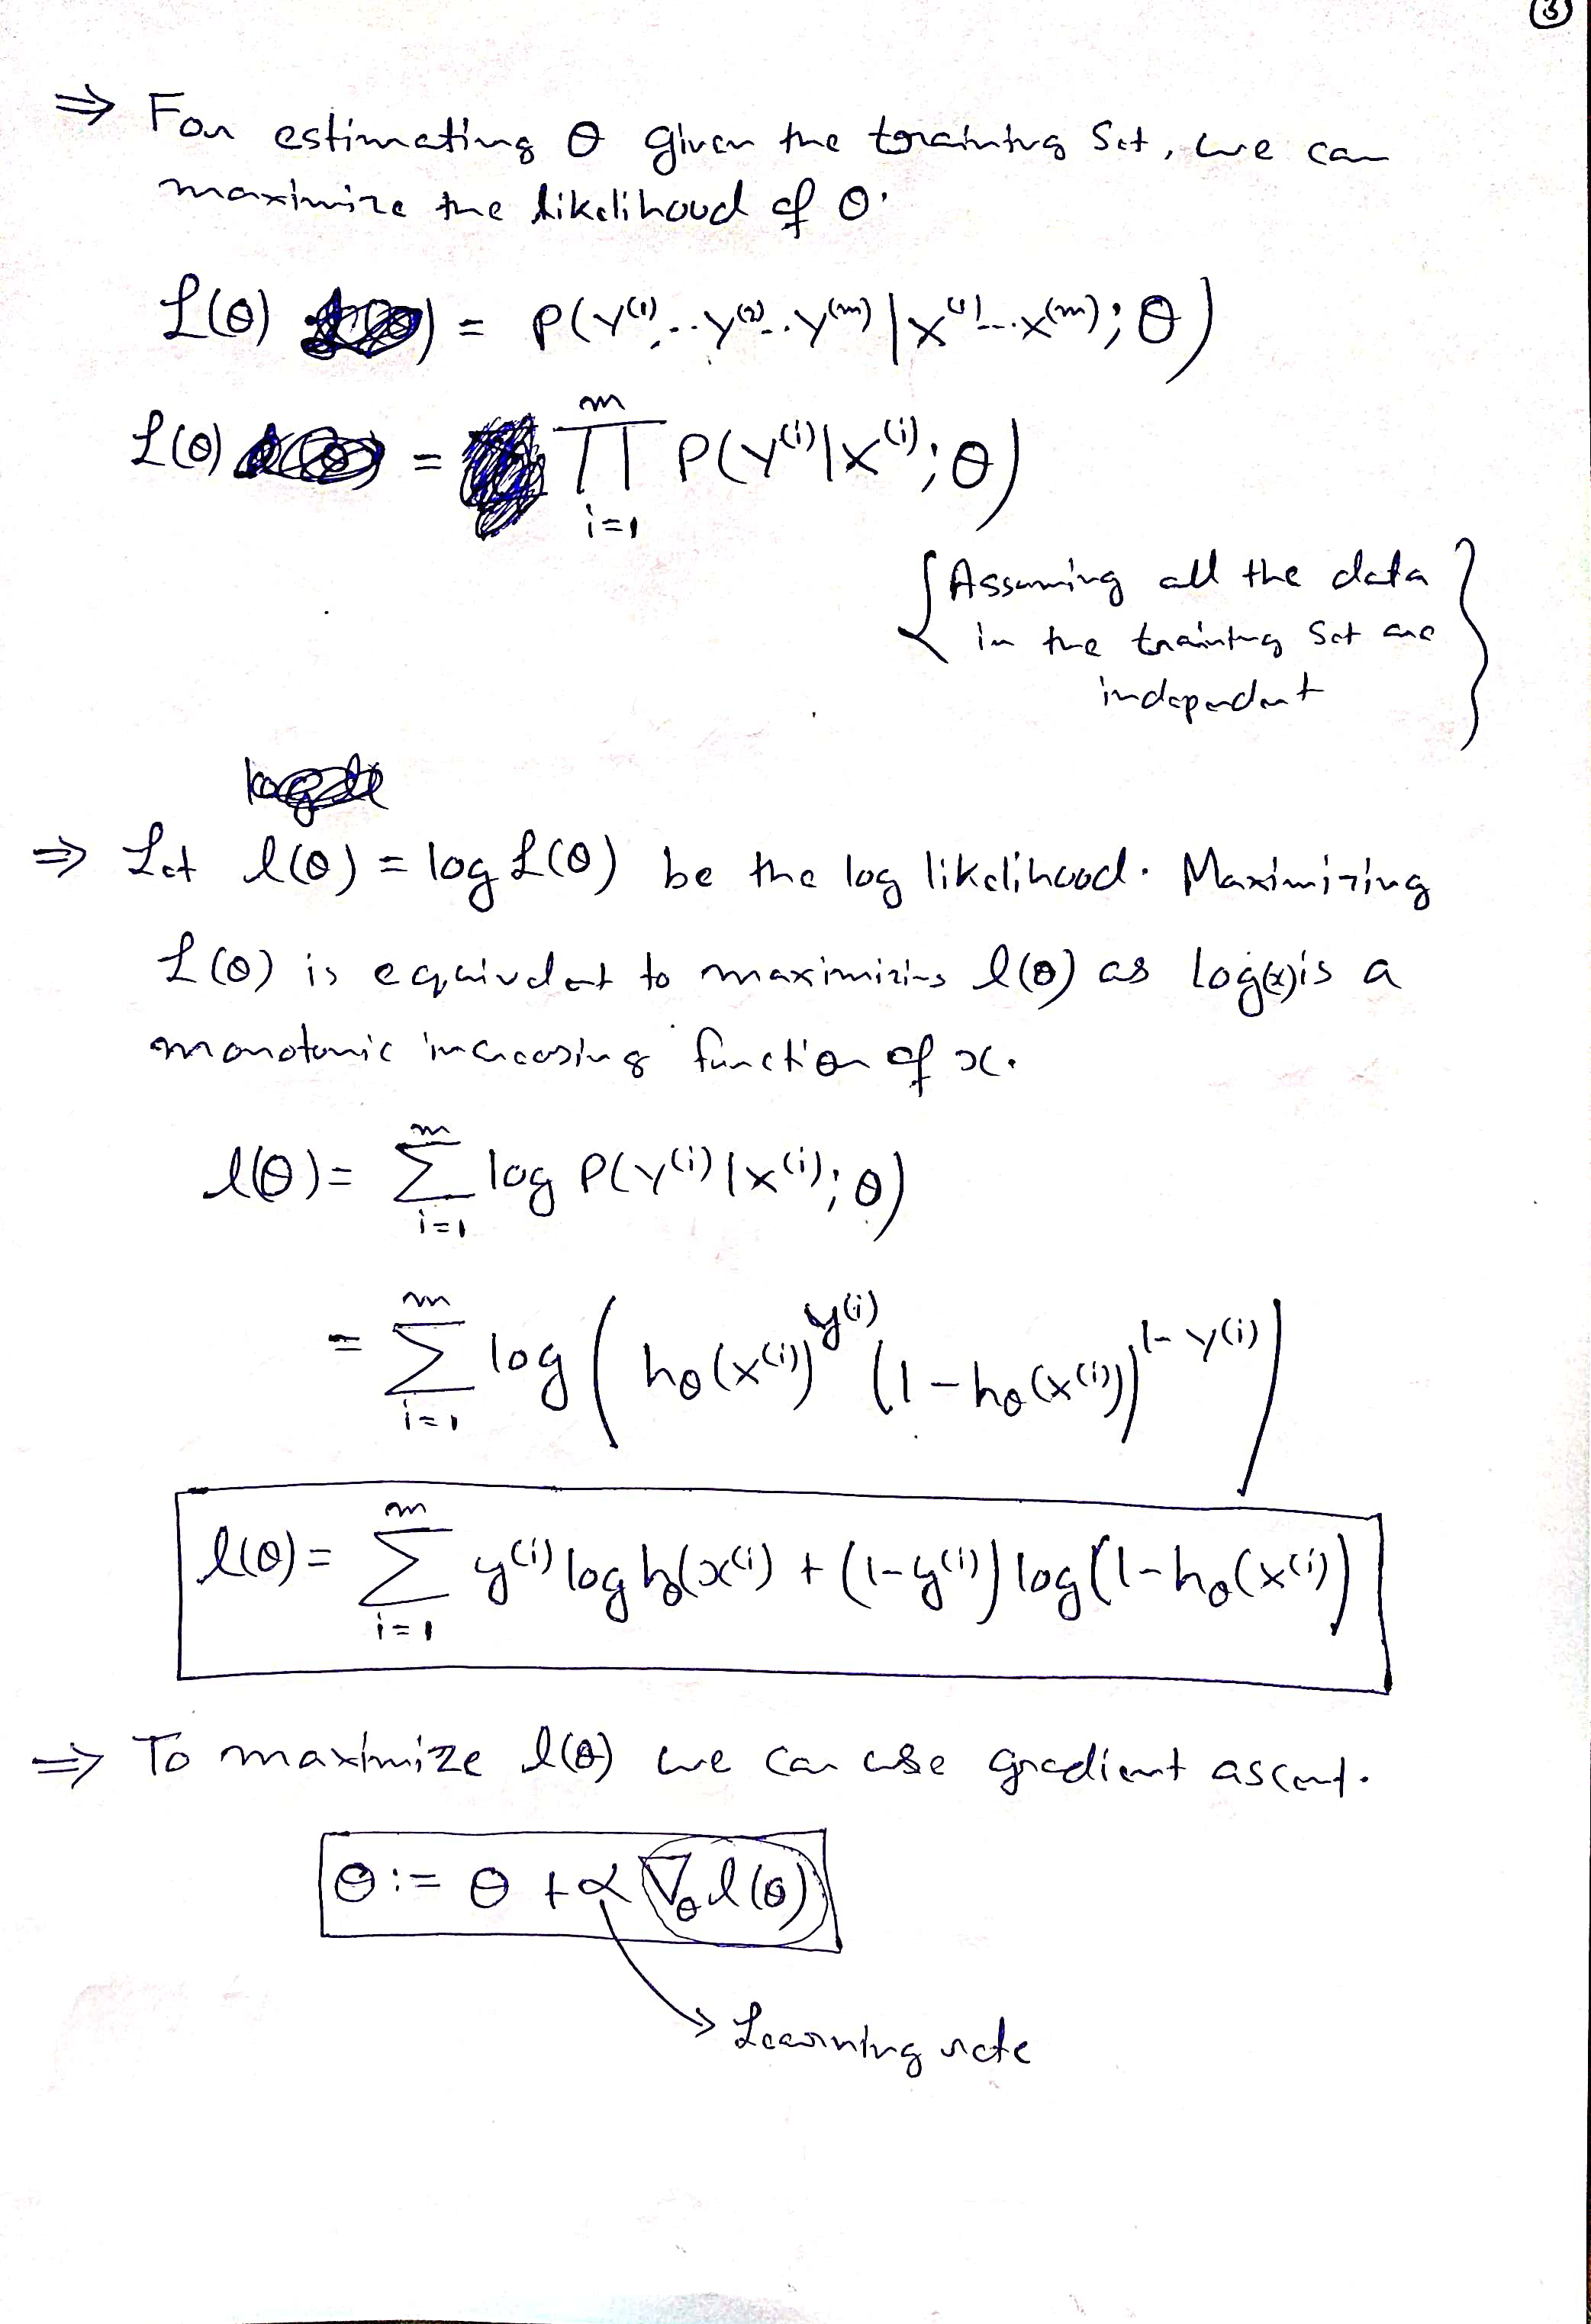 ③
⇒ For estimating θ given the training Set, we can
maximize the likelihood of θ.
L(θ) = P(y⁽¹⁾...y⁽²⁾...y⁽ᵐ⁾ | x⁽¹⁾...x⁽ᵐ⁾; θ)
L(θ) = ∏_{i=1}^{m} P(y⁽ⁱ⁾|x⁽ⁱ⁾; θ)
{Assuming all the data
in the training Set are
independent}
⇒ Let l(θ) = log L(θ) be the log likelihood. Maximizing
L(θ) is equivalent to maximizing l(θ) as log(x) is a
monotonic increasing function of x.
l(θ) = ∑_{i=1}^{m} log P(y⁽ⁱ⁾|x⁽ⁱ⁾; θ)
= ∑_{i=1}^{m} log (h_θ(x⁽ⁱ⁾)^{y⁽ⁱ⁾} (1 - h_θ(x⁽ⁱ⁾))^{1-y⁽ⁱ⁾})
l(θ) = ∑_{i=1}^{m} y⁽ⁱ⁾ log h_θ(x⁽ⁱ⁾) + (1-y⁽ⁱ⁾) log(1-h_θ(x⁽ⁱ⁾)
⇒ To maximize l(θ) we can use gradient ascent.
θ := θ + α ∇_θ l(θ)
→ Learning rate